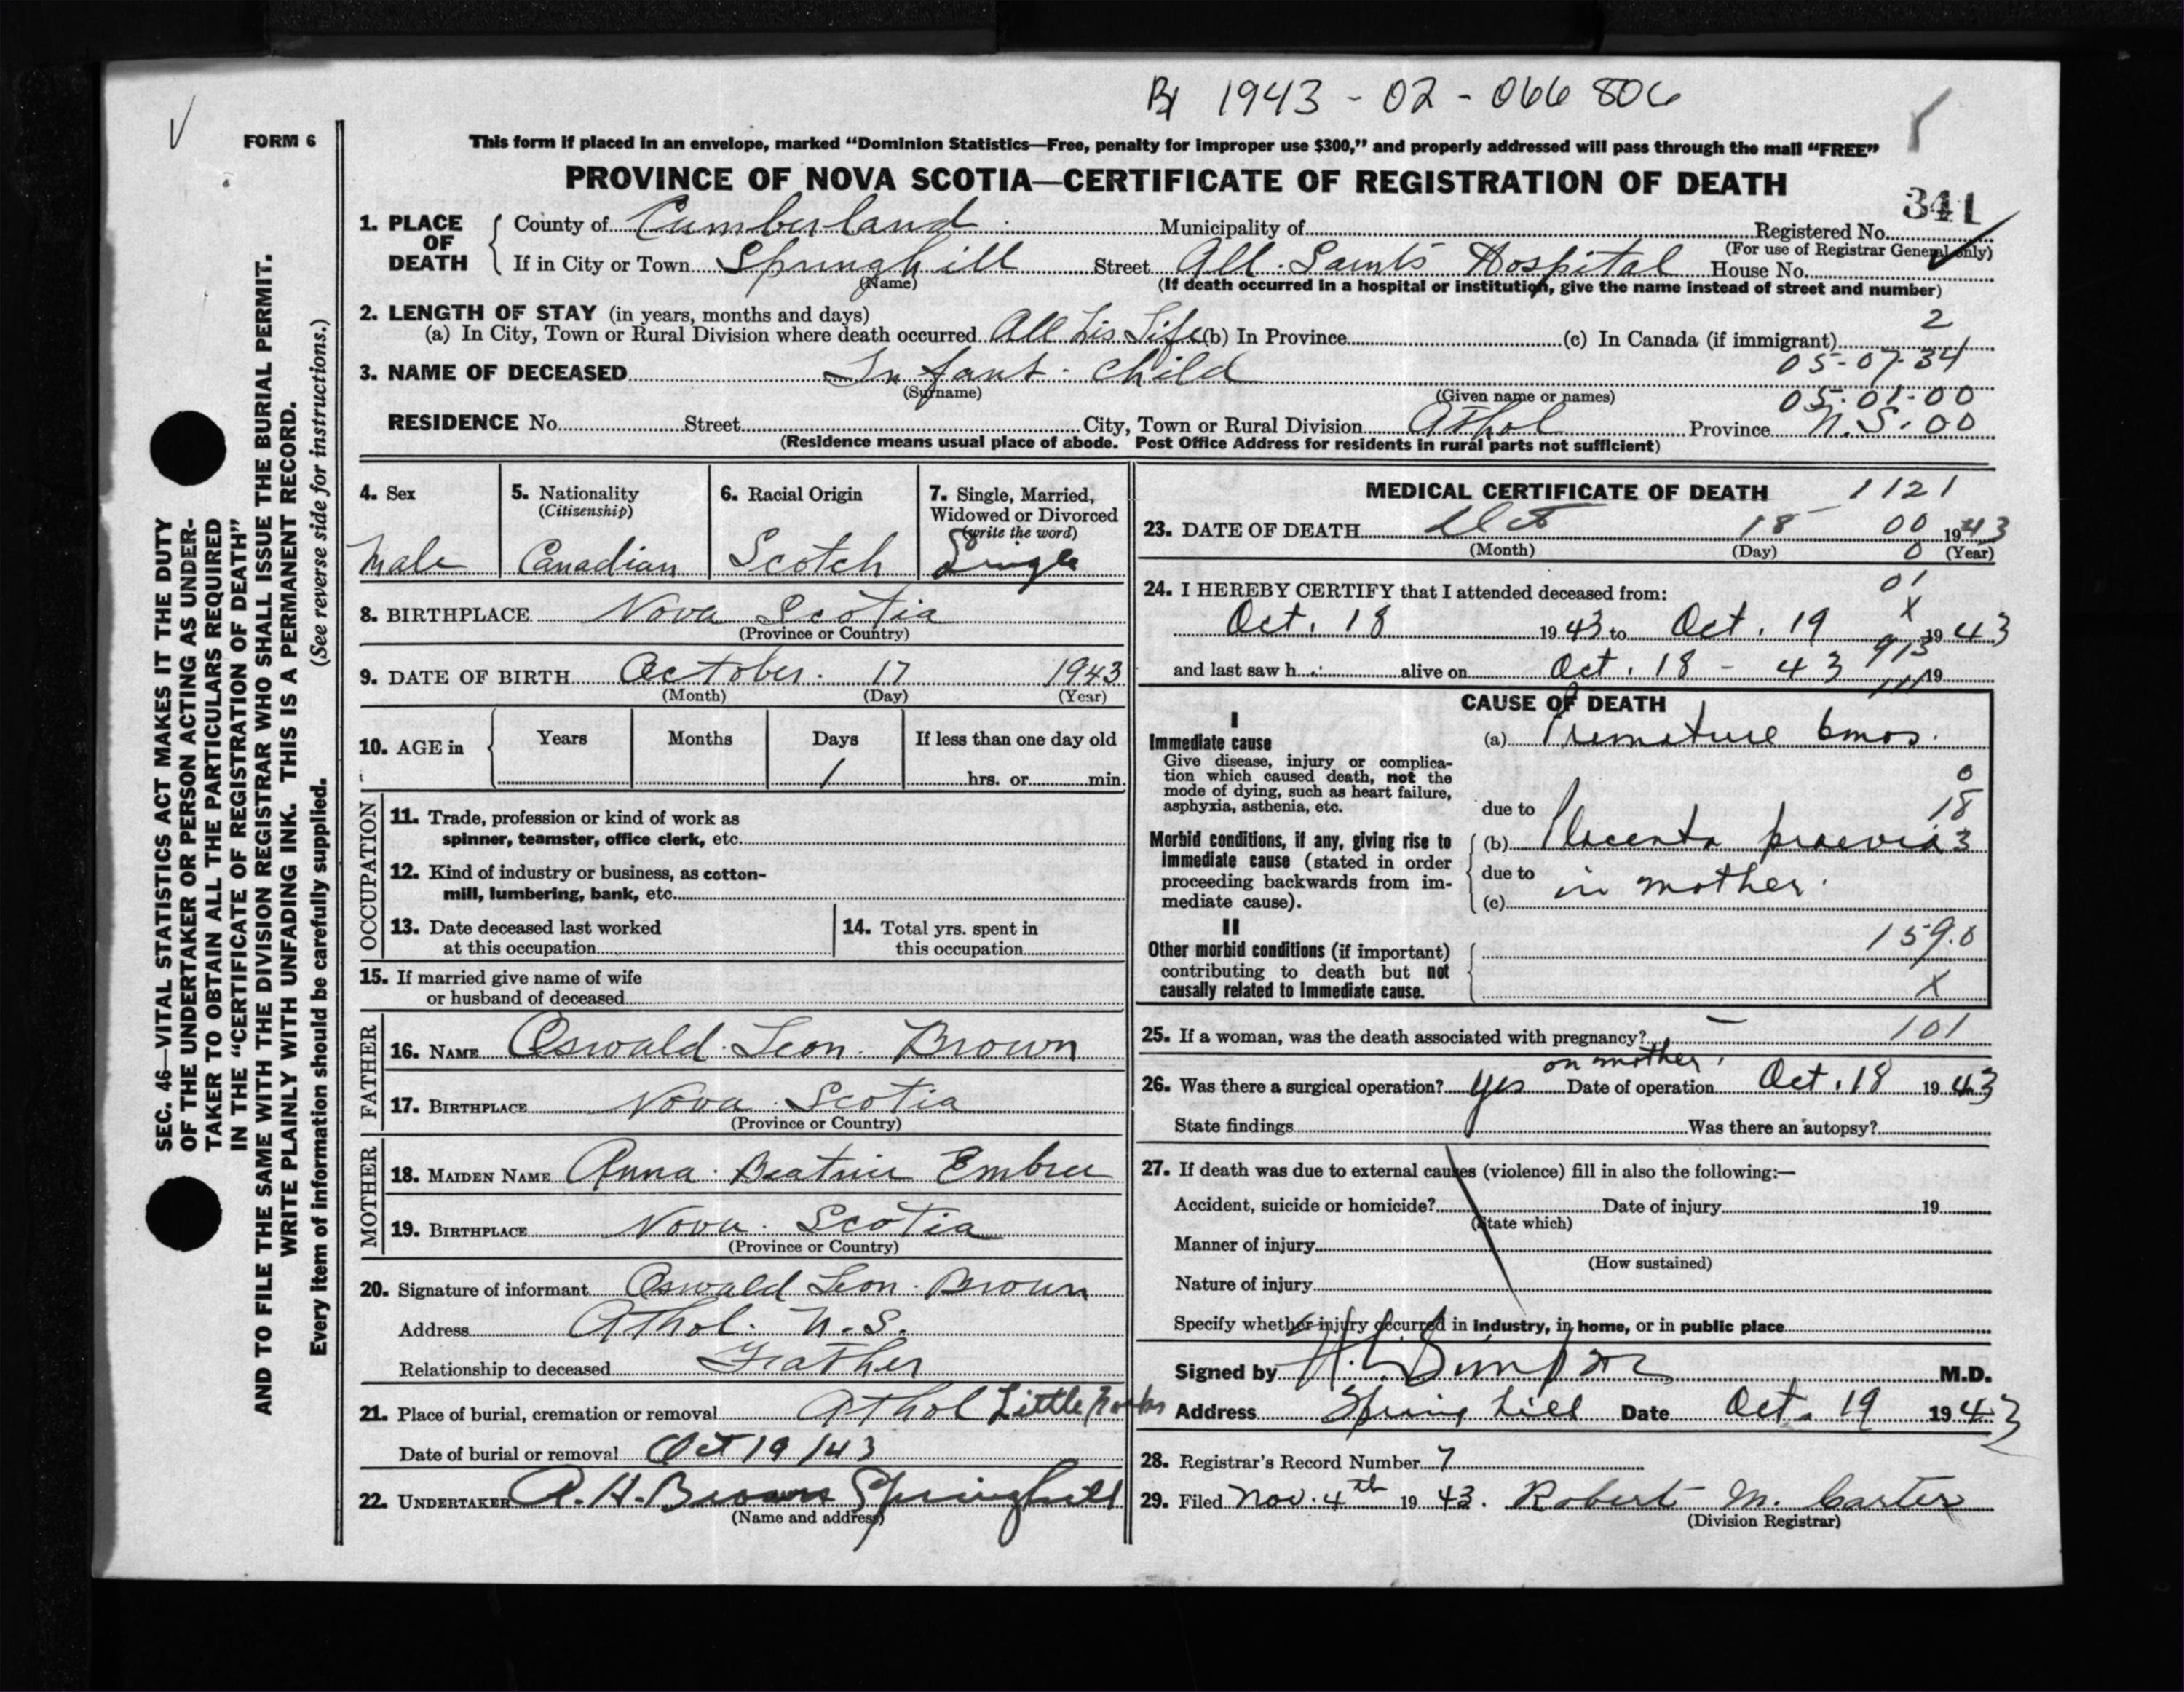 B 1943 - 02 - 066806
FORM 6
This form if placed in an envelope, marked "Dominion Statistics—Free, penalty for improper use $300," and properly addressed will pass through the mail "FREE"
PROVINCE OF NOVA SCOTIA—CERTIFICATE OF REGISTRATION OF DEATH
341
1. PLACE OF DEATH
County of Cumberland Municipality of Registered No.
(For use of Registrar General only)
If in City or Town Springhill Street All Saints Hospital House No.
(Name) (If death occurred in a hospital or institution, give the name instead of street and number)
2. LENGTH OF STAY (in years, months and days)
(a) In City, Town or Rural Division where death occurred All his Life (b) In Province (c) In Canada (if immigrant) 2
05-07-34
3. NAME OF DECEASED Infant child
(Surname) (Given name or names) 05-01-00
RESIDENCE No. Street City, Town or Rural Division Athol Province N.S. 00
(Residence means usual place of abode. Post Office Address for residents in rural parts not sufficient)
4. Sex
Male
5. Nationality
(Citizenship)
Canadian
6. Racial Origin
Scotch
7. Single, Married,
Widowed or Divorced
(write the word)
Single
8. BIRTHPLACE Nova Scotia
(Province or Country)
9. DATE OF BIRTH October 17 1943
(Month) (Day) (Year)
10. AGE in Years Months Days If less than one day old
1 hrs. or min.
OCCUPATION
11. Trade, profession or kind of work as
spinner, teamster, office clerk, etc.
12. Kind of industry or business, as cotton-
mill, lumbering, bank, etc.
13. Date deceased last worked
at this occupation
14. Total yrs. spent in
this occupation
15. If married give name of wife
or husband of deceased
FATHER
16. NAME Oswald Leon Brown
17. BIRTHPLACE Nova Scotia
(Province or Country)
MOTHER
18. MAIDEN NAME Anna Beatrice Embree
19. BIRTHPLACE Nova Scotia
(Province or Country)
20. Signature of informant Oswald Leon Brown
Address Athol N.S.
Relationship to deceased Father
21. Place of burial, cremation or removal Athol Little
Date of burial or removal Oct 19/43
22. UNDERTAKER A.H. Brown Springhill
(Name and address)
MEDICAL CERTIFICATE OF DEATH 1121
23. DATE OF DEATH Oct 18 00 1943
(Month) (Day) 0 (Year)
24. I HEREBY CERTIFY that I attended deceased from: 01
X
Oct. 18 1943 to Oct. 19 1943
913
and last saw h alive on Oct. 18 - 43 19
CAUSE OF DEATH
I
Immediate cause
Give disease, injury or complica-
tion which caused death, not the
mode of dying, such as heart failure,
asphyxia, asthenia, etc.
(a) Premature 6 mos.
0
18
due to
Morbid conditions, if any, giving rise to
immediate cause (stated in order
proceeding backwards from im-
mediate cause).
(b) Placenta praevia 3
due to in mother
(c)
II
Other morbid conditions (if important)
contributing to death but not
causally related to immediate cause.
159.0
X
25. If a woman, was the death associated with pregnancy? — 101
on mother
26. Was there a surgical operation? yes Date of operation Oct. 18 1943
State findings Was there an autopsy?
27. If death was due to external causes (violence) fill in also the following:—
Accident, suicide or homicide? Date of injury 19
(State which)
Manner of injury
(How sustained)
Nature of injury
Specify whether injury occurred in industry, in home, or in public place
Signed by M.D.
Address Springhill Date Oct. 19 1943
28. Registrar's Record Number 7
29. Filed Nov. 4th 1943. Robert M. Carter
(Division Registrar)
SEC. 46—VITAL STATISTICS ACT MAKES IT THE DUTY
OF THE UNDERTAKER OR PERSON ACTING AS UNDER-
TAKER TO OBTAIN ALL THE PARTICULARS REQUIRED
IN THE "CERTIFICATE OF REGISTRATION OF DEATH"
AND TO FILE THE SAME WITH THE DIVISION REGISTRAR WHO SHALL ISSUE THE BURIAL PERMIT.
WRITE PLAINLY WITH UNFADING INK. THIS IS A PERMANENT RECORD.
Every item of information should be carefully supplied. (See reverse side for instructions.)